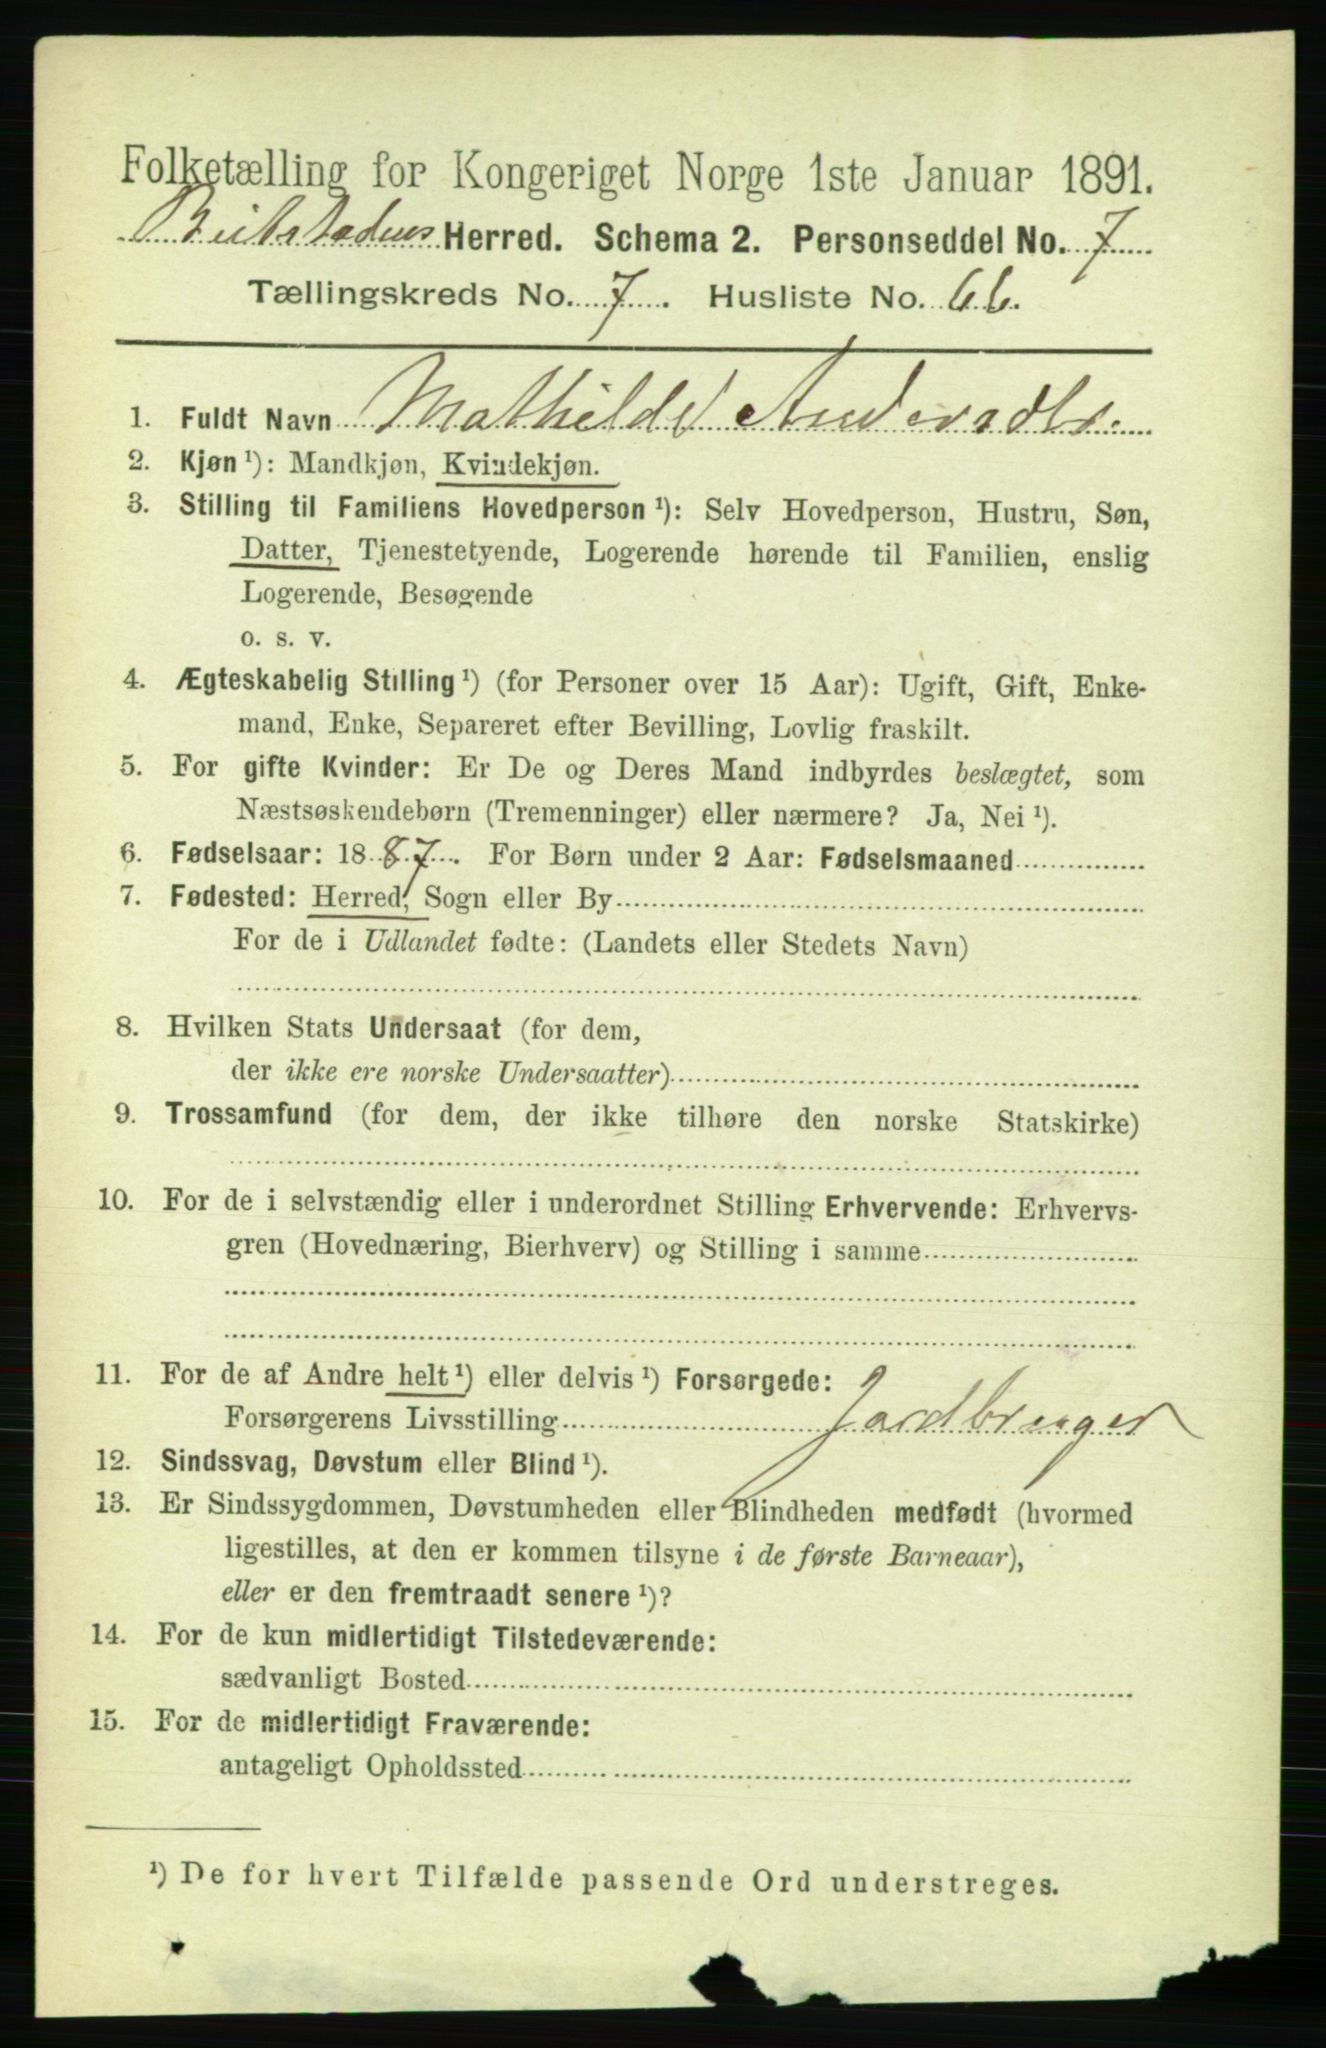 Folketælling for Kongeriget Norge 1ste Januar 1891.
Beitstadens Herred. Schema 2. Personseddel No. 7
Tællingskreds No. 7. Husliste No. 66.
1. Fuldt Navn Mathilde Andersdtr.
2. Kjøn ¹): Mandkjøn, Kvindekjøn.
3. Stilling til Familiens Hovedperson ¹): Selv Hovedperson, Hustru, Søn,
Datter, Tjenestetyende, Logerende hørende til Familien, enslig
Logerende, Besøgende
o. s. v.
4. Ægteskabelig Stilling ¹) (for Personer over 15 Aar): Ugift, Gift, Enke-
mand, Enke, Separeret efter Bevilling, Lovlig fraskilt.
5. For gifte Kvinder: Er De og Deres Mand indbyrdes beslægtet, som
Næstsøskendebørn (Tremenninger) eller nærmere? Ja, Nei ¹).
6. Fødselsaar: 1887. For Børn under 2 Aar: Fødselsmaaned
7. Fødested: Herred, Sogn eller By
For de i Udlandet fødte: (Landets eller Stedets Navn)
8. Hvilken Stats Undersaat (for dem,
der ikke ere norske Undersaatter)
9. Trossamfund (for dem, der ikke tilhøre den norske Statskirke)
10. For de i selvstændig eller i underordnet Stilling Erhvervende: Erhvervs-
gren (Hovednæring, Bierhverv) og Stilling i samme
11. For de af Andre helt ¹) eller delvis ¹) Forsørgede:
Forsørgerens Livsstilling Jordbruger
12. Sindssvag, Døvstum eller Blind ¹).
13. Er Sindssygdommen, Døvstumheden eller Blindheden medfødt (hvormed
ligestilles, at den er kommen tilsyne i de første Barneaar),
eller er den fremtraadt senere ¹)?
14. For de kun midlertidigt Tilstedeværende:
sædvanligt Bosted
15. For de midlertidigt Fraværende:
antageligt Opholdssted
¹) De for hvert Tilfælde passende Ord understreges.